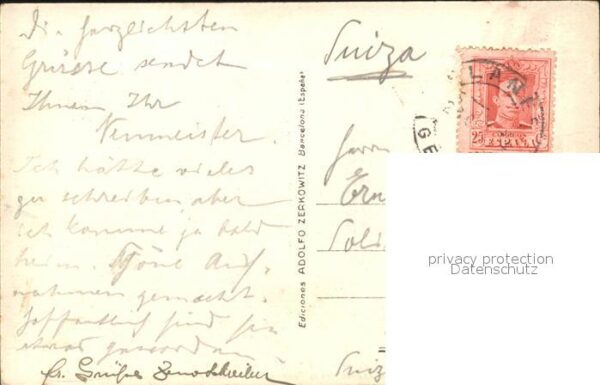 Die herzlichsten
Grüsse sendet
Ihnen Ihr
Neumeister.
Ich hätte vieles
zu schreiben, aber
ich komme ja bald
heim. Schöne Auf-
nahmen gemacht.
Hoffentlich sind sie
etwas geworden
Grüße
Ediciones ADOLFO ZERKOWITZ Barcelona (España)
Suiza
25
CORREOS
ESPAÑA
Herrn
Suiz
privacy protection
Datenschutz